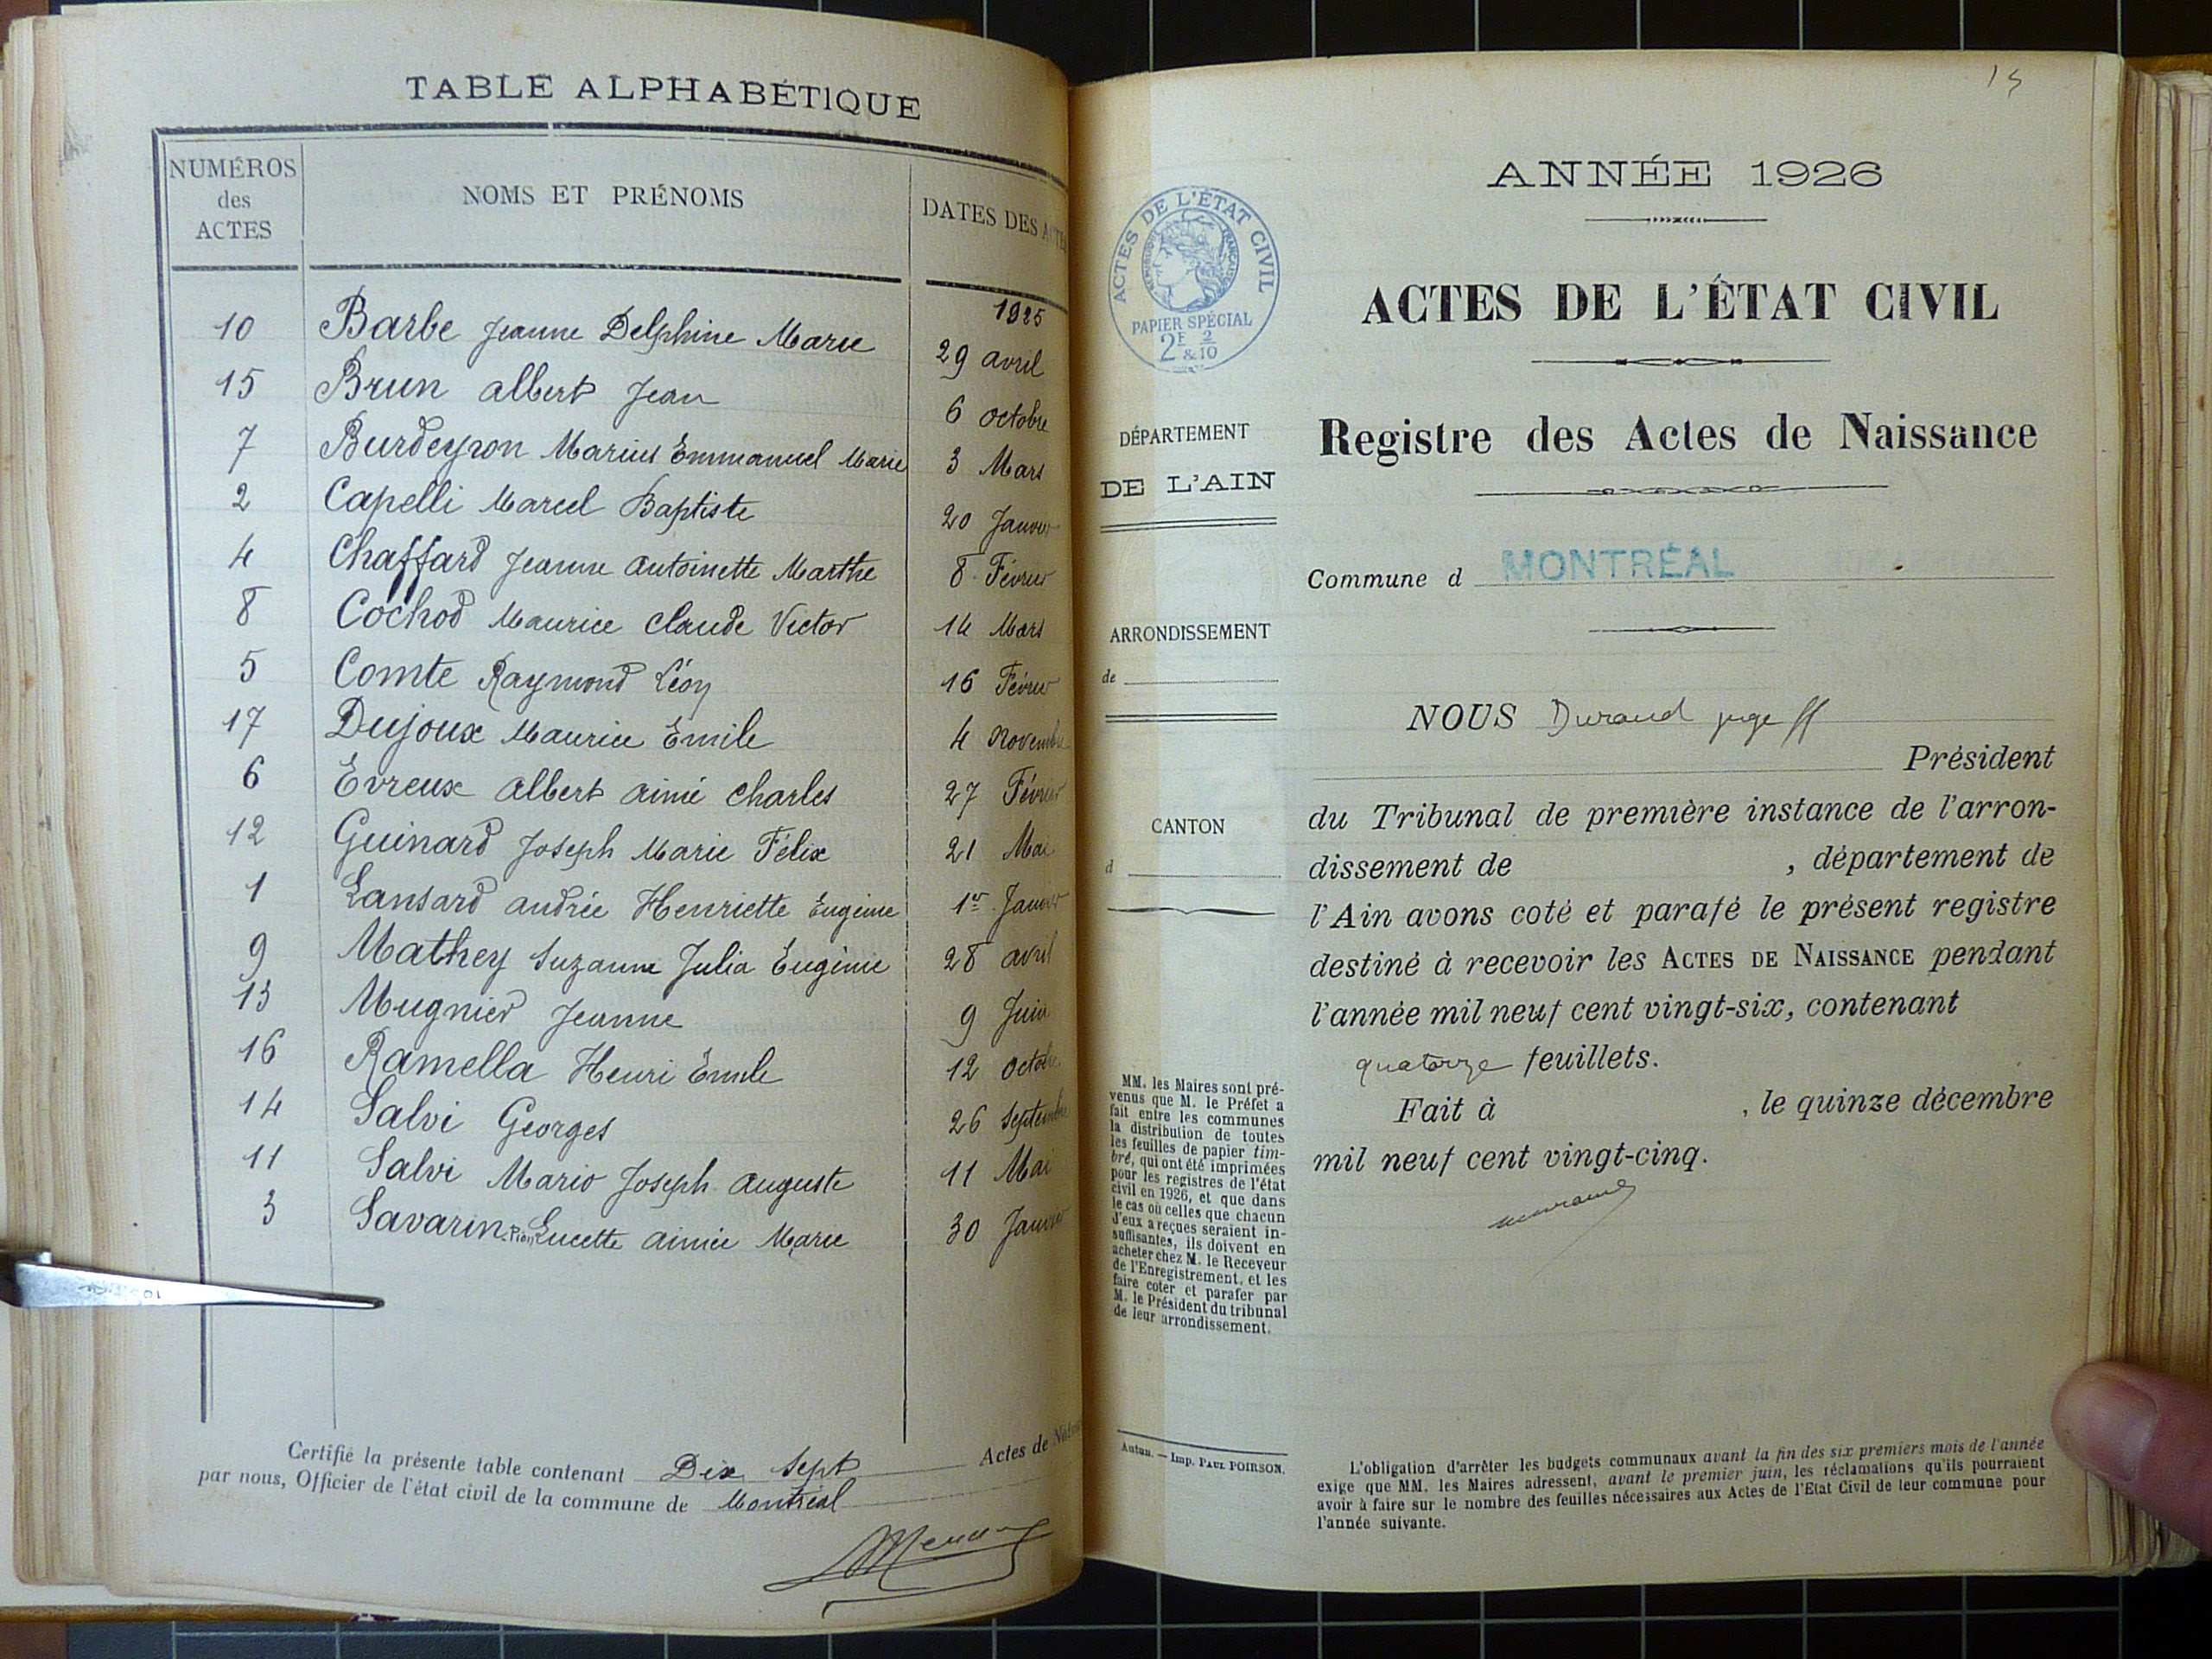 TABLE ALPHABÉTIQUE
NUMÉROS des ACTES
NOMS ET PRÉNOMS
DATES DES ACTES
1925
10 Barbe Jeanne Delphine Marie 29 avril
15 Brun Albert Jean 6 octobre
7 Burdeyron Marius Emmanuel Marie 3 Mars
2 Capelli Marcel Baptiste 20 Janvier
4 Chaffard Jeanne Antoinette Marthe 8 Février
8 Cochod Maurice Claude Victor 14 Mars
5 Comte Raymond Léon 16 Février
17 Dujoux Maurice Emile 4 Novembre
6 Evreux Albert Aimé Charles 27 Février
12 Guinard Joseph Marie Félix 21 Mai
1 Lansard Andrée Henriette Eugénie 1er Janvier
9 Mathey Suzanne Julia Eugénie 28 avril
13 Mugnier Jeanne 9 Juin
16 Ramella Henri Emile 12 Octobre
14 Salvi Georges 26 Septembre
11 Salvi Mario Joseph Auguste 11 Mai
3 Savarin Lucette Aimée Marie 30 Janvier
Certifié la présente table contenant Dix sept Actes de
par nous, Officier de l'état civil de la commune de Montréal
15
ANNÉE 1926
ACTES DE L'ÉTAT CIVIL
RÉPUBLIQUE FRANÇAISE
PAPIER SPÉCIAL
2F 2/10
&
ACTES DE L'ÉTAT CIVIL
Registre des Actes de Naissance
DÉPARTEMENT
DE L'AIN
Commune d MONTRÉAL
ARRONDISSEMENT
de
NOUS Durand juge ff
Président
du Tribunal de première instance de l'arron-
dissement de , département de
l'Ain avons coté et parafé le présent registre
destiné à recevoir les ACTES DE NAISSANCE pendant
l'année mil neuf cent vingt-six, contenant
quatorze feuillets.
Fait à , le quinze décembre
mil neuf cent vingt-cinq.
CANTON
d
MM. les Maires sont pré-
venus que M. le Préfet a
fait entre les communes
la distribution de toutes
les feuilles de papier tim-
bré, qui ont été imprimées
pour les registres de l'état
civil en 1926, et que dans
le cas où celles que chacun
d'eux a reçues seraient in-
suffisantes, ils doivent en
acheter chez M. le Receveur
de l'Enregistrement, et les
faire coter et parafer par
M. le Président du tribunal
de leur arrondissement.
Autun. — Imp. PAUL POIRSON.
L'obligation d'arrêter les budgets communaux avant la fin des six premiers mois de l'année
exige que MM. les Maires adressent, avant le premier juin, les réclamations qu'ils pourraient
avoir à faire sur le nombre des feuilles nécessaires aux Actes de l'Etat Civil de leur commune pour
l'année suivante.